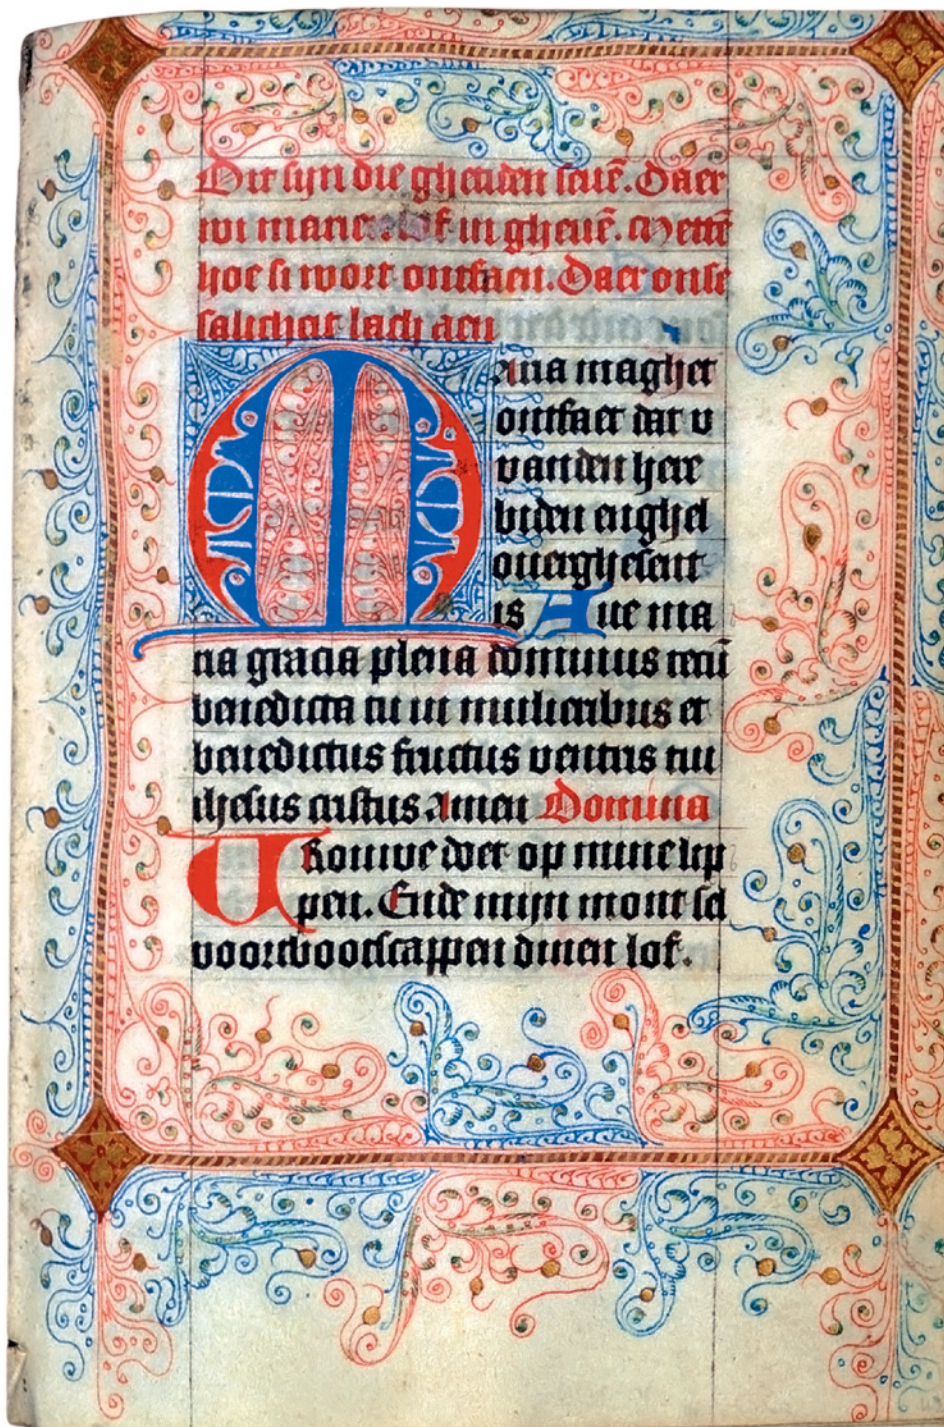 Dit sijn die ghetiden seuē. Daer
wi marie lof in gheuē. Mettē
hoe si wort ontfaen. Daer onse
salicheit lach aen
Maria maghet
ontfaet dat v
vanden here
biden enghel
ouerghesent
is Aue ma
ria gracia plena dominus tecū
benedicta tu in mulieribus et
benedictus fructus ventris tui
ihesus cristus amen Domina
VRouwe doet op mine lip
pen. Ende mijn mont sel
voortbootscappen dinen lof.